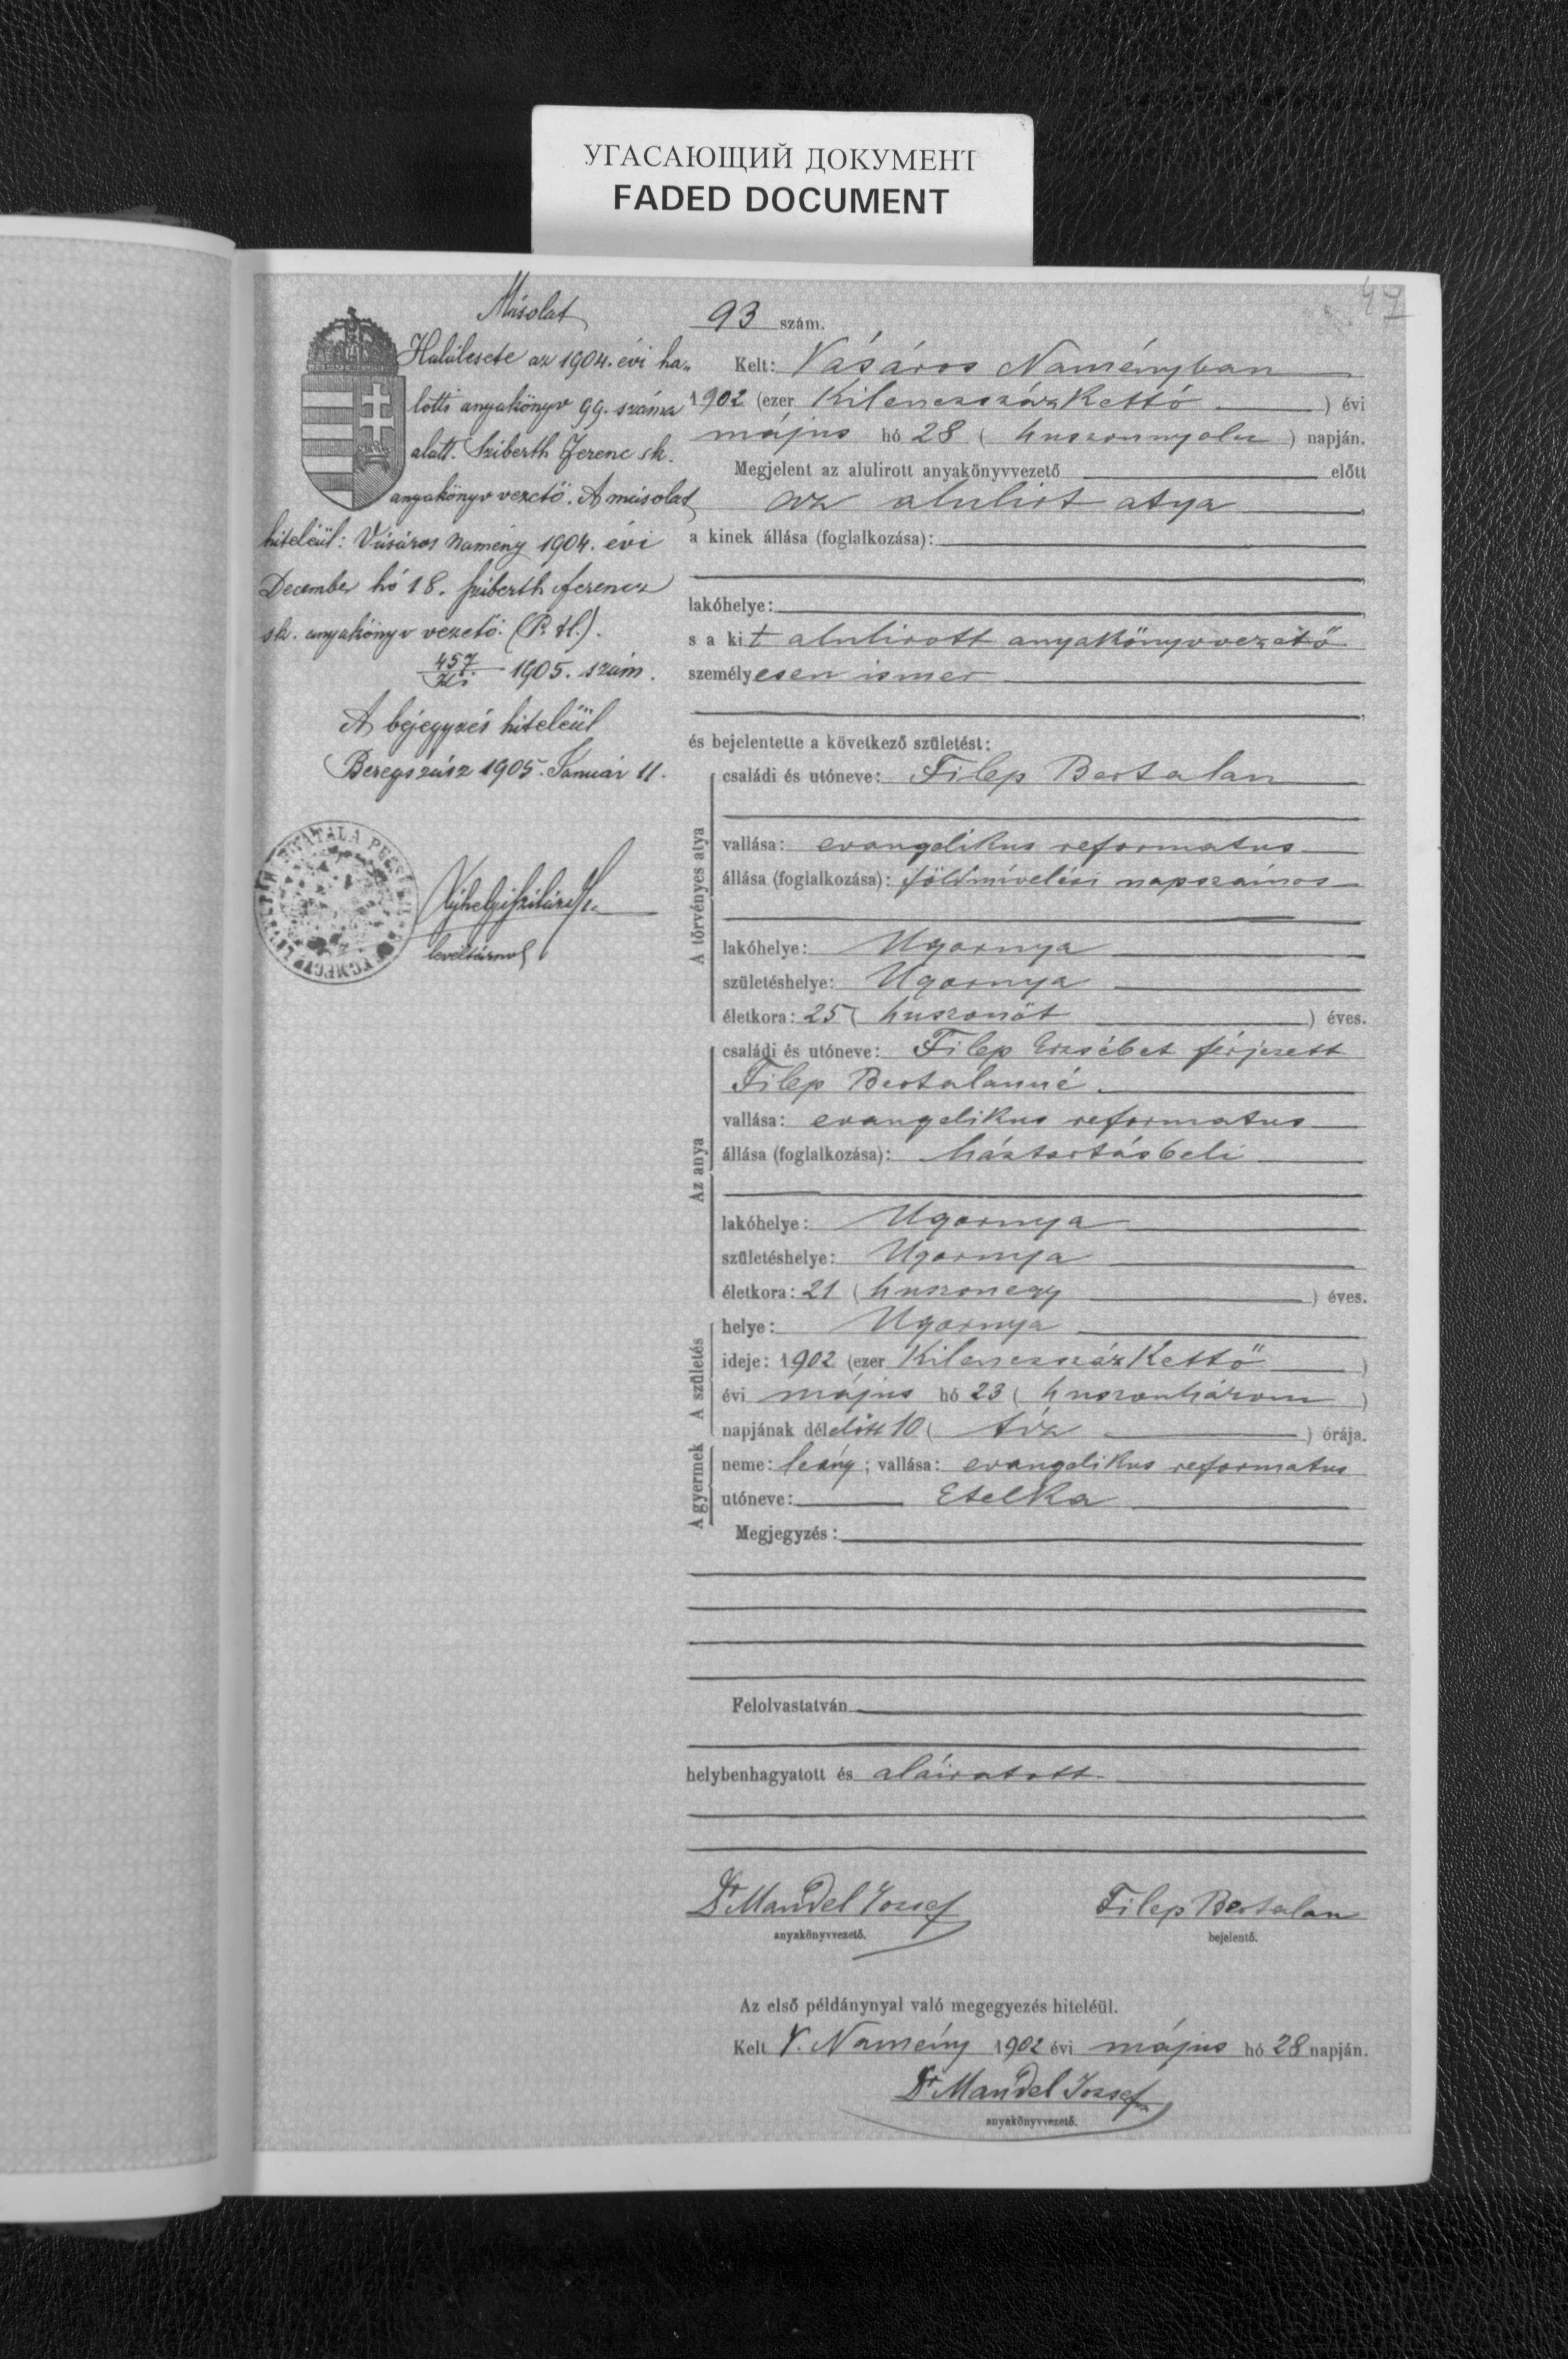 УГАСАЮЩИЙ ДОКУМЕНТ
FADED DOCUMENT
47
Másolat
Halálesete az 1904. évi ha-
lotti anyakönyv 99. száma
alatt. Sziberth Ferenc sk.
anyakönyv vezető. A másolat
hiteléül: Vásáros Namény 1904. évi
December hó 18. Sziberth Ferencz
sk. anyakönyv vezető. (P. H.).
457/Ki 1905. szám.
A bejegyzés hiteléül
Beregszász 1905. Január 11.
levéltárnok
93 szám.
Kelt: Vásáros Naményban
1902 (ezer Kilenczszáz Kettő ) évi
május hó 28 ( huszonnyolcz ) napján.
Megjelent az alulirott anyakönyvvezető előtt
az alulirt atya ,
a kinek állása (foglalkozása):
lakóhelye:
s a kit alulirott anyakönyvvezető
személyesen ismer
és bejelentette a következő születést:
A törvényes atya
családi és utóneve: Filep Bertalan
vallása: evangelikus reformatus
állása (foglalkozása): földmívelési napszámos
lakóhelye: Ugornya
születéshelye: Ugornya
életkora: 25 ( huszonöt ) éves.
Az anya
családi és utóneve: Filep Erzsébet férjezett
Filep Bertalanné
vallása: evangelikus reformatus
állása (foglalkozása): háztartásbeli
lakóhelye: Ugornya
születéshelye: Ugornya
életkora: 21 ( huszonegy ) éves.
A születés
helye: Ugornya
ideje: 1902 (ezer Kilenczszáz Kettő )
évi május hó 23 ( huszonhárom )
napjának délelőtt 10 ( tíz ) órája.
A gyermek
neme: leány ; vallása: evangelikus reformatus
utóneve: Etelka
Megjegyzés:
Felolvastatván
helybenhagyatott és aláiratott.
Dr Mandel József Filep Bertalan
anyakönyvvezető. bejelentő.
Az első példánynyal való megegyezés hiteléül.
Kelt V. Namény 1902 évi május hó 28 napján.
Dr Mandel József
anyakönyvvezető.